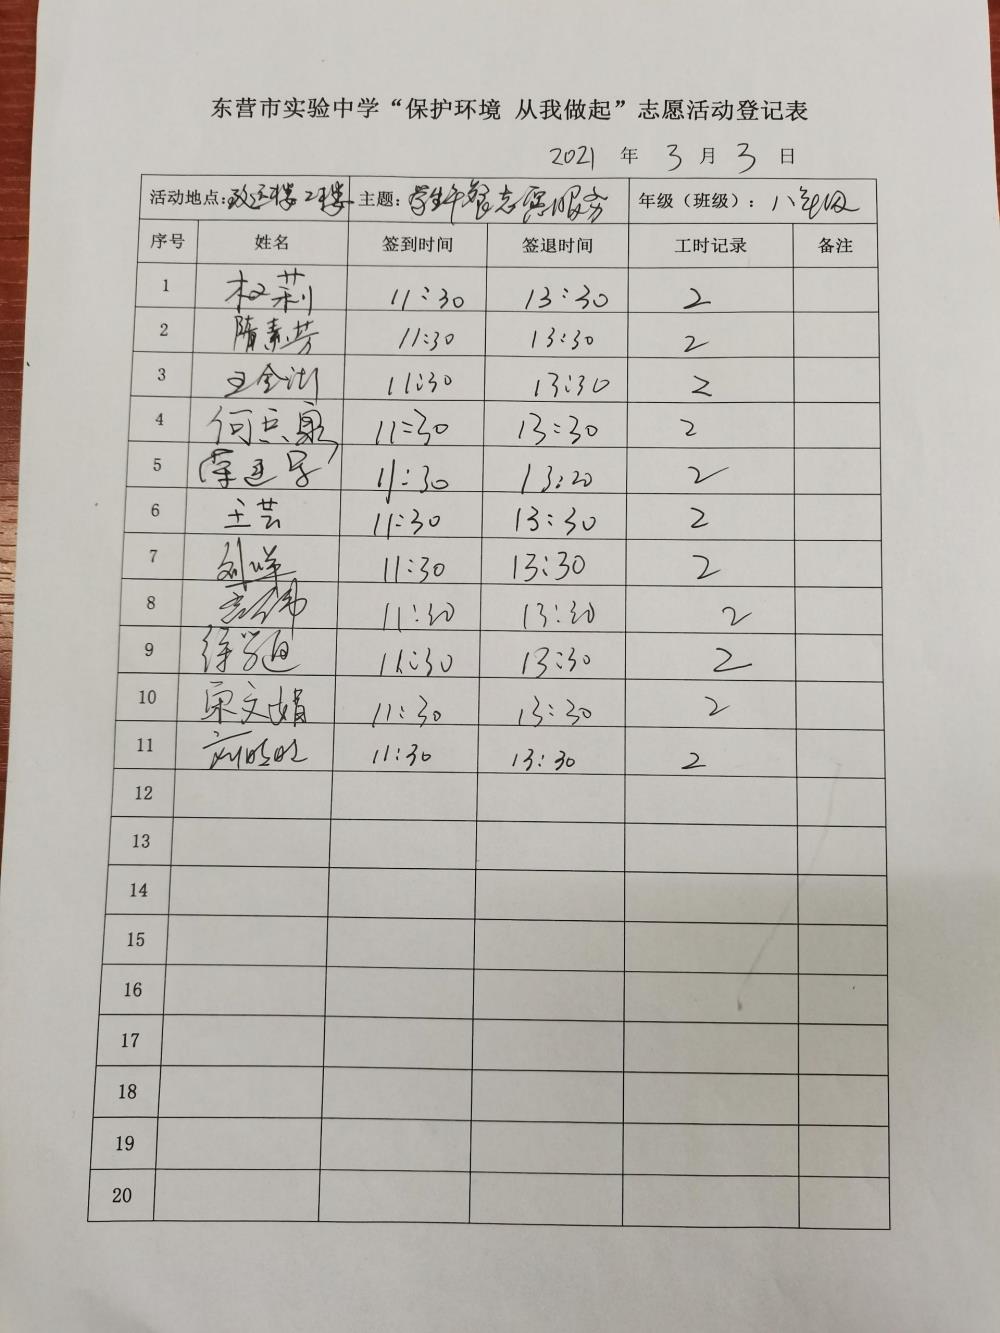 东营市实验中学“保护环境 从我做起”志愿活动登记表
2021 年 3 月 3 日
活动地点: 二楼 主题: 学生午餐志愿服务 年级（班级）: 八年级
序号 姓名 签到时间 签退时间 工时记录 备注
1 权莉 11:30 13:30 2
2 隋素芳 11:30 13:30 2
3 11:30 13:30 2
4 11:30 13:30 2
5 11:30 13:20 2
6 王芸 11:30 13:30 2
7 11:30 13:30 2
8 11:30 13:30 2
9 11:30 13:30 2
10 宋文娟 11:30 13:30 2
11 11:30 13:30 2
12
13
14
15
16
17
18
19
20